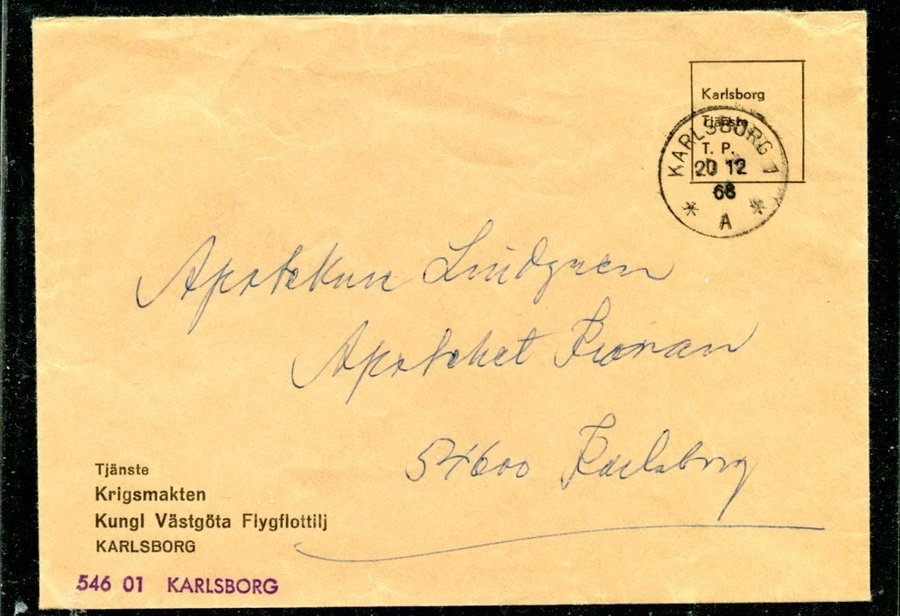 Karlsborg
Tjänste
T. P.
KARLSBORG 1
20 12
68
* A *
Apotekare Lindgren
Apoteket Kronan
54600 Karlsborg
Tjänste
Krigsmakten
Kungl Västgöta Flygflottilj
KARLSBORG
546 01 KARLSBORG